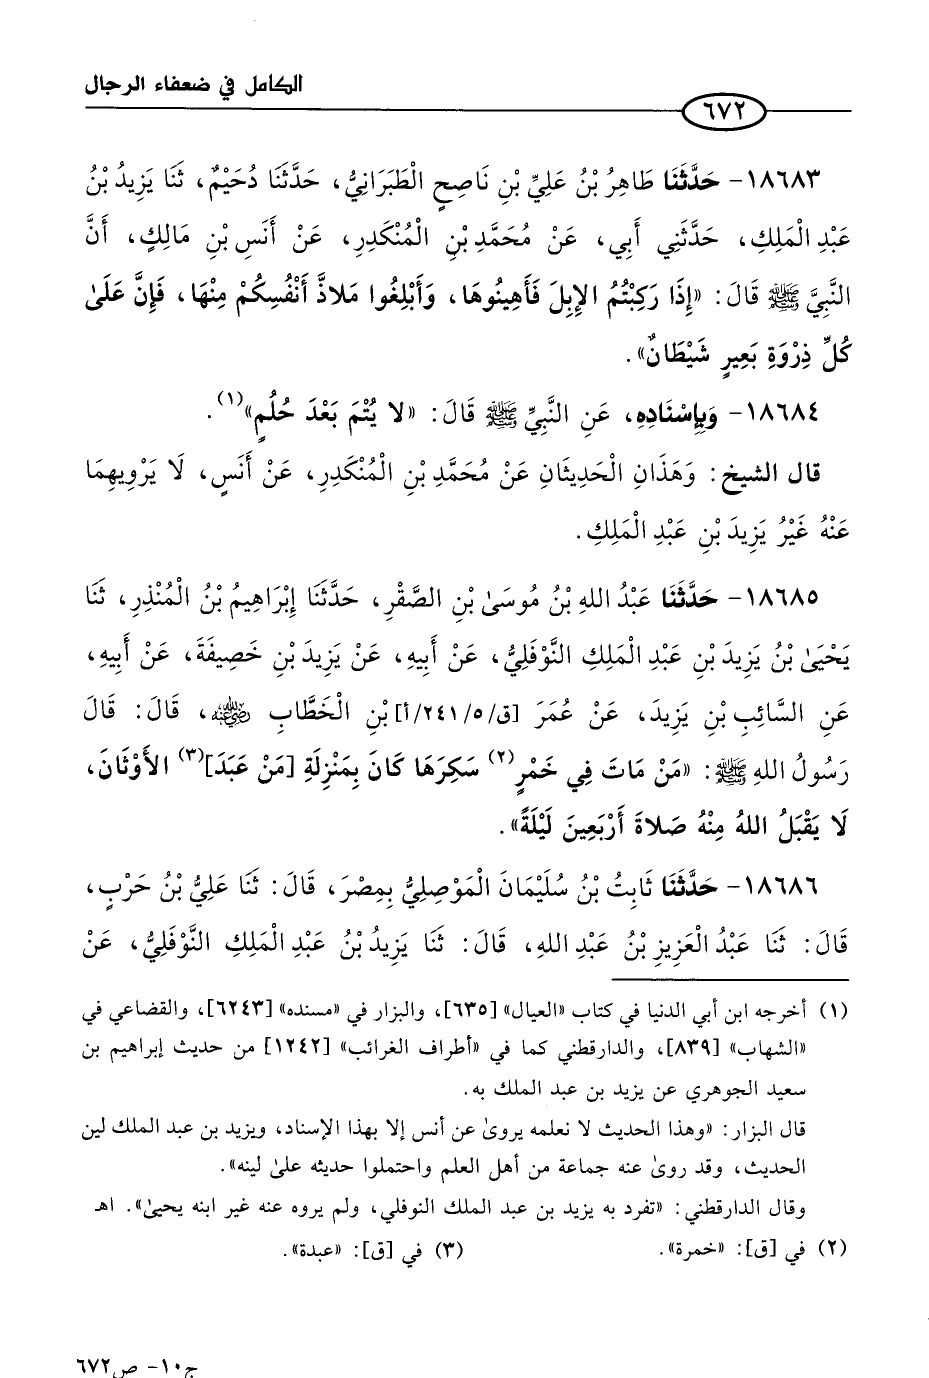 الكامل في ضعفاء الرجال
٦٧٢
١٨٦٨٣- حَدَّثَنَا طَاهِرُ بْنُ عَلِيِّ بْنِ نَاصِحٍ الْطَبَرَانِيُّ، حَدَّثَنَا دُحَيْمٌ، ثَنَا يَزِيدُ بْنُ
عَبْدِ الْمَلِكِ، حَدَّثَنِي أَبِي، عَنْ مُحَمَّدِ بْنِ الْمُنْكَدِرِ، عَنْ أَنَسِ بْنِ مَالِكٍ، أَنَّ
النَّبِيَّ ﷺ قَالَ: «إِذَا رَكِبْتُمُ الإِبِلَ فَأَهِينُوهَا، وَأَبْلِغُوا مَلاذَّ أَنْفُسِكُمْ مِنْهَا، فَإِنَّ عَلَىٰ
كُلِّ ذِرْوَةِ بَعِيرٍ شَيْطَانٌ».
١٨٦٨٤- وَبِإِسْنَادِهِ، عَنِ النَّبِيِّ ﷺ قَالَ: «لا يُتْمَ بَعْدَ حُلُمٍ»(١).
قال الشيخ: وَهَذَانِ الْحَدِيثَانِ عَنْ مُحَمَّدِ بْنِ الْمُنْكَدِرِ، عَنْ أَنَسٍ، لَا يَرْوِيهِمَا
عَنْهُ غَيْرُ يَزِيدَ بْنِ عَبْدِ الْمَلِكِ.
١٨٦٨٥- حَدَّثَنَا عَبْدُ اللهِ بْنُ مُوسَىٰ بْنِ الصَّقْرِ، حَدَّثَنَا إِبْرَاهِيمُ بْنُ الْمُنْذِرِ، ثَنَا
يَحْيَىٰ بْنُ يَزِيدَ بْنِ عَبْدِ الْمَلِكِ النَّوْفَلِيُّ، عَنْ أَبِيهِ، عَنْ يَزِيدَ بْنِ خَصِيفَةَ، عَنْ أَبِيهِ،
عَنِ السَّائِبِ بْنِ يَزِيدَ، عَنْ عُمَرَ [ق/٢٤١/٥/أ] بْنِ الْخَطَّابِ رضي الله عنه، قَالَ: قَالَ
رَسُولُ اللهِ ﷺ: «مَنْ مَاتَ فِي خَمْرٍ(٢) سَكِرَهَا كَانَ بِمَنْزِلَةِ [مَنْ عَبَدَ](٣) الأَوْثَانَ،
لَا يَقْبَلُ اللهُ مِنْهُ صَلاةَ أَرْبَعِينَ لَيْلَةً».
١٨٦٨٦- حَدَّثَنَا ثَابِتُ بْنُ سُلَيْمَانَ الْمَوْصِلِيُّ بِمِصْرَ، قَالَ: ثَنَا عَلِيُّ بْنُ حَرْبٍ،
قَالَ: ثَنَا عَبْدُ الْعَزِيزِ بْنُ عَبْدِ اللهِ، قَالَ: ثَنَا يَزِيدُ بْنُ عَبْدِ الْمَلِكِ النَّوْفَلِيُّ، عَنْ
(١) أخرجه ابن أبي الدنيا في كتاب «العيال» [٦٣٥]، والبزار في «مسنده» [٦٢٤٣]، والقضاعي في
«الشهاب» [٨٣٩]، والدارقطني كما في «أطراف الغرائب» [١٢٤٢] من حديث إبراهيم بن
سعيد الجوهري عن يزيد بن عبد الملك به.
قال البزار: «وهذا الحديث لا نعلمه يروىٰ عن أنس إلا بهذا الإسناد، ويزيد بن عبد الملك لين
الحديث، وقد روىٰ عنه جماعة من أهل العلم واحتملوا حديثه علىٰ لينه».
وقال الدارقطني: «تفرد به يزيد بن عبد الملك النوفلي، ولم يروه عنه غير ابنه يحيىٰ». اهـ
(٢) في [ق]: «خمرة». (٣) في [ق]: «عبدة».
ج١٠- ص٦٧٢